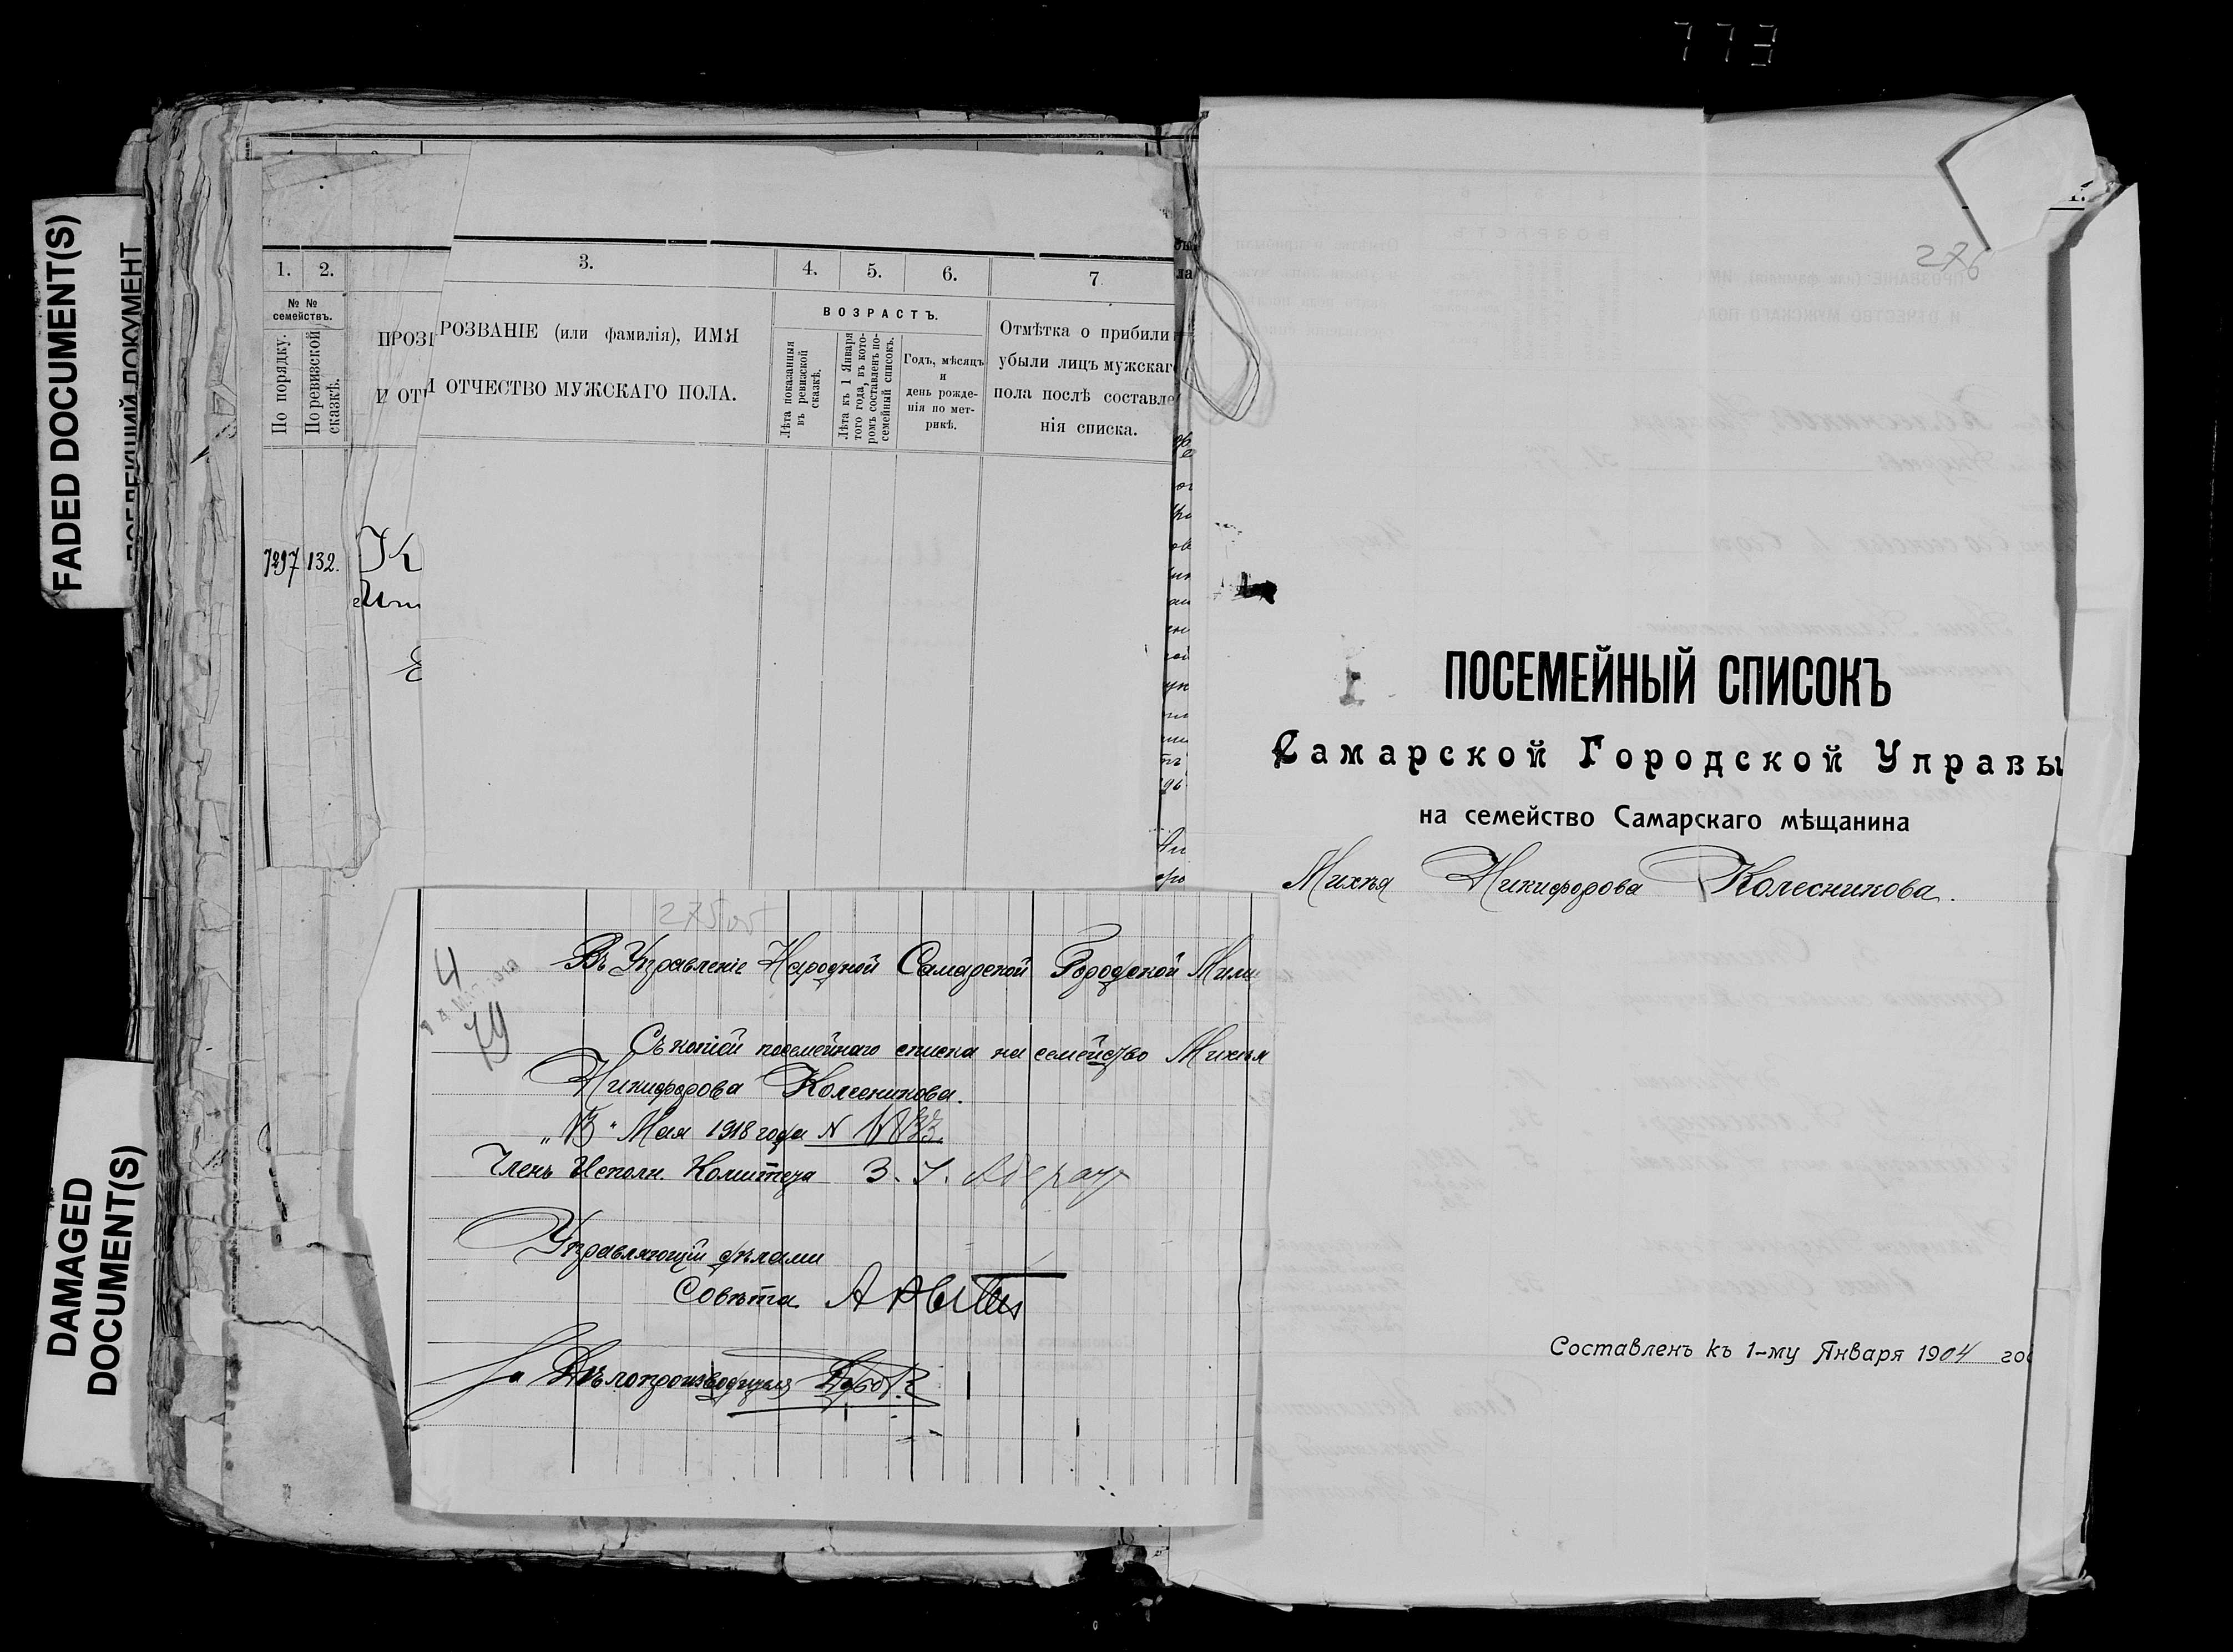 773
FADED DOCUMENT(S)
DAMAGED
DOCUMENT(S)
1. 2.
№ №
семействъ.
По порядку.
По ревизской
сказкѣ.
3. 4. 5. 6. 7.
РОЗВАНІЕ (или фамилія), ИМЯ
ОТЧЕСТВО МУЖСКАГО ПОЛА.
ВОЗРАСТЪ.
Лѣта показанныя
въ ревизской
сказкѣ.
Лѣта къ 1 Января
того года, въ кото-
ромъ составленъ по-
семейный списокъ.
Годъ, мѣсяцъ
и
день рожде-
нія по мет-
рикѣ.
Отмѣтка о прибили
убыли лицъ мужскаг
пола послѣ составле
нія списка.
7297 132.
275об
Въ Управленіе Народной Самарской Городской Мили
Съ копіей посемейнаго списка на семейство Михѣя
Никифорова Колесникова.
Мая 1918 года №
Членъ Исполн. Комитета
Управляющій дѣлами
Совѣта
За Дѣлопроизводителя
276
ПОСЕМЕЙНЫЙ СПИСОКЪ
Самарской Городской Управы
на семейство Самарскаго мѣщанина
Михѣя Никифорова Колесникова.
Составленъ къ 1-му Января 1904 го